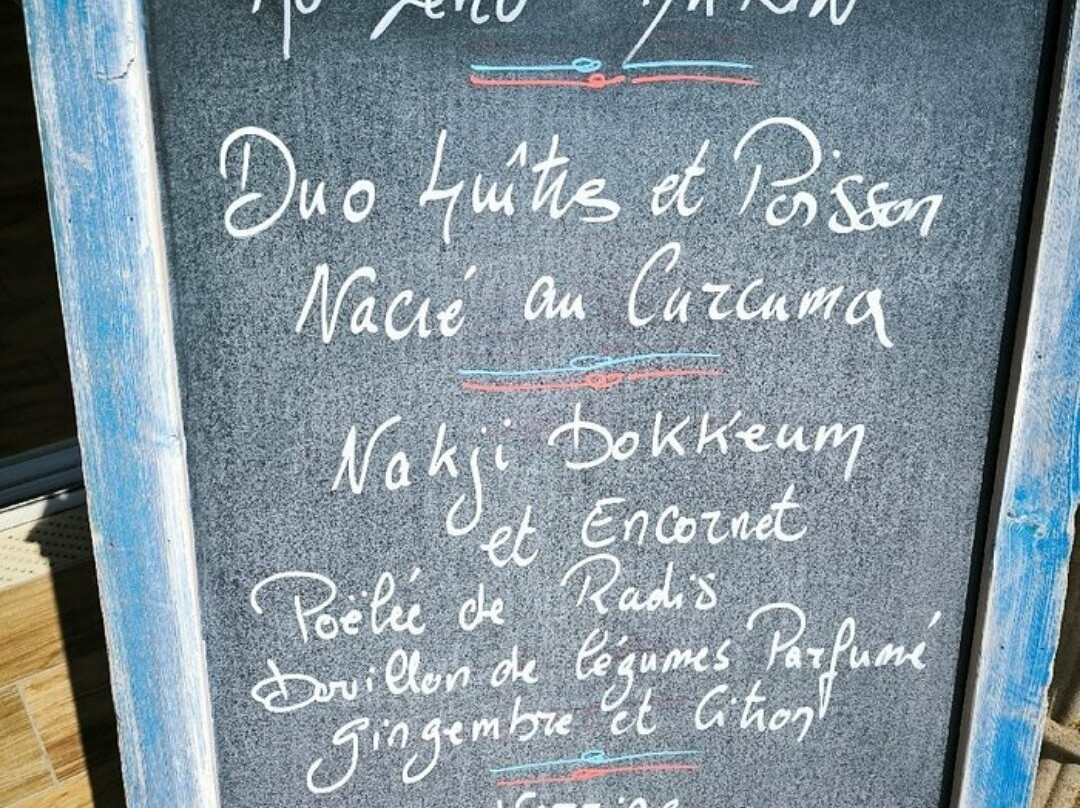 Duo Huîtres et Poisson
Nacré au Curcuma
Nakji Bokkeum
et Encornet
Poëlée de Radis
Bouillon de légumes Parfumé
gingembre et Citron